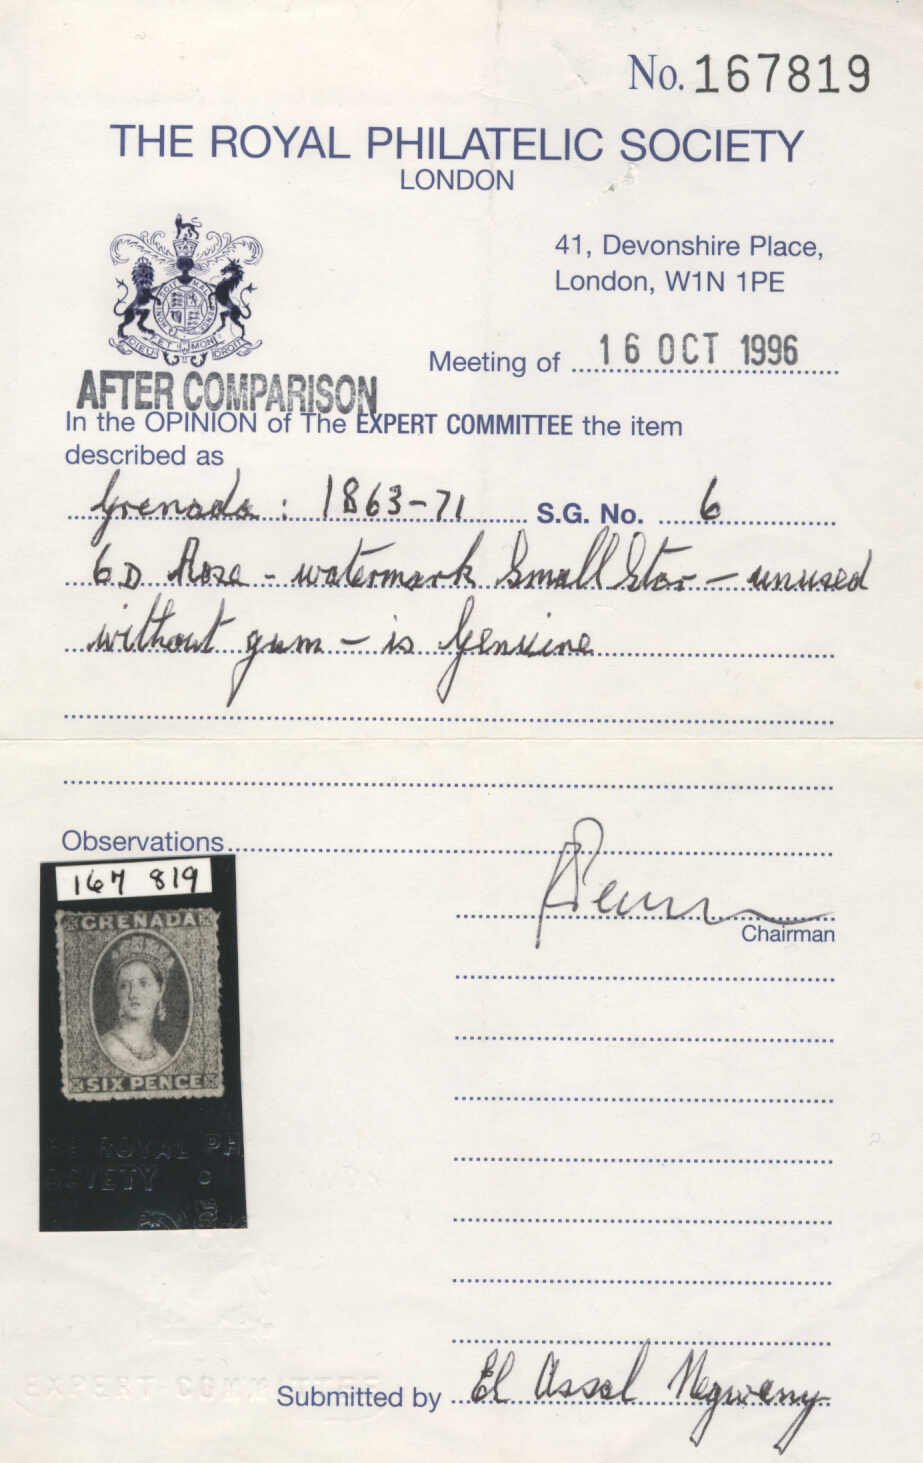 No. 167819
THE ROYAL PHILATELIC SOCIETY
LONDON
41, Devonshire Place,
London, W1N 1PE
DIEU ET MON DROIT
Meeting of 16 OCT 1996
AFTER COMPARISON
In the OPINION of The EXPERT COMMITTEE the item
described as
Grenada: 1863-71 S.G. No. 6
6D Rose - watermark Small Star - unused
without gum - is Genuine
Observations
167 819
GRENADA
SIX PENCE
Chairman
ROYAL PH
SOCIETY
EXPERT COMMITTEE
Submitted by El Assal